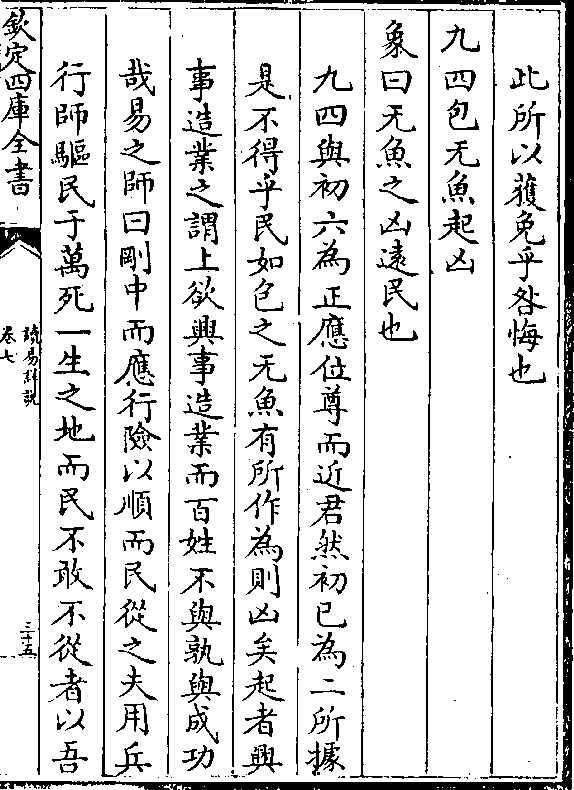 此所以獲免乎咎悔也
九四包无魚起凶
象曰无魚之凶遠民也
九四與初六為正應位尊而近君然初已為二所據
是不得乎民如包之无魚有所作為則凶矣起者興
事造業之謂上欲興事造業而百姓不與孰與成功
哉易之師曰剛中而應行險以順而民從之夫用兵
行師驅民于萬死一生之地而民不敢不從者以吾
欽定四庫全書
讀易詳說
卷七
三十五